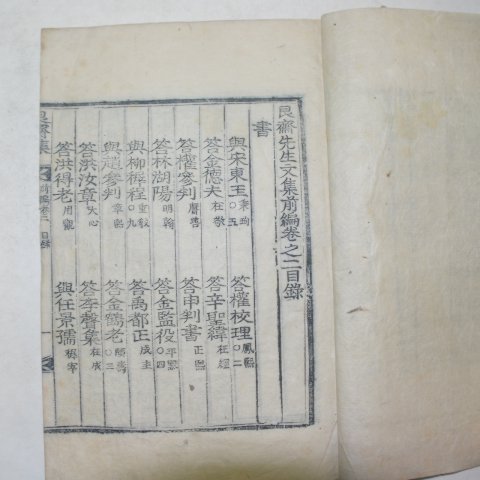 艮齋先生文集前編卷之二目錄
書
與宋東玉秉珣○五
答權校理鳳熙○二
答金德夫在敬
答辛聖緯在經
答權參判膺善
答申判書正熙
答林湖陽明翰
答金監役平默○四
與柳穉程重敎○九
答禹都正成圭
與趙參判章熙
答金鶴老顯禼○三
答洪汝章大心
答李聲集在成
答洪得老用觀
與任景孺
艮齋集
前編卷二 目錄
一